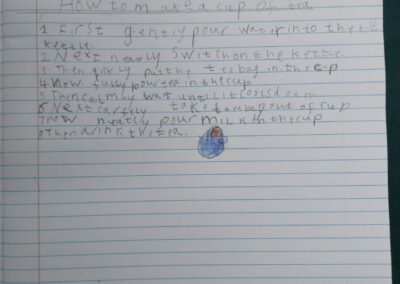 How to make a cup of tea
1 First gently pour water into the
kettle.
2 Next neatly switch on the kettle.
3 Then put the teabag in the cup
4 Now pour tea in the cup.
5 Then calmly wait until it cools down.
5 Next take the teabag out of cup
7 now neatly pour milk in the cup
Then drink the tea.